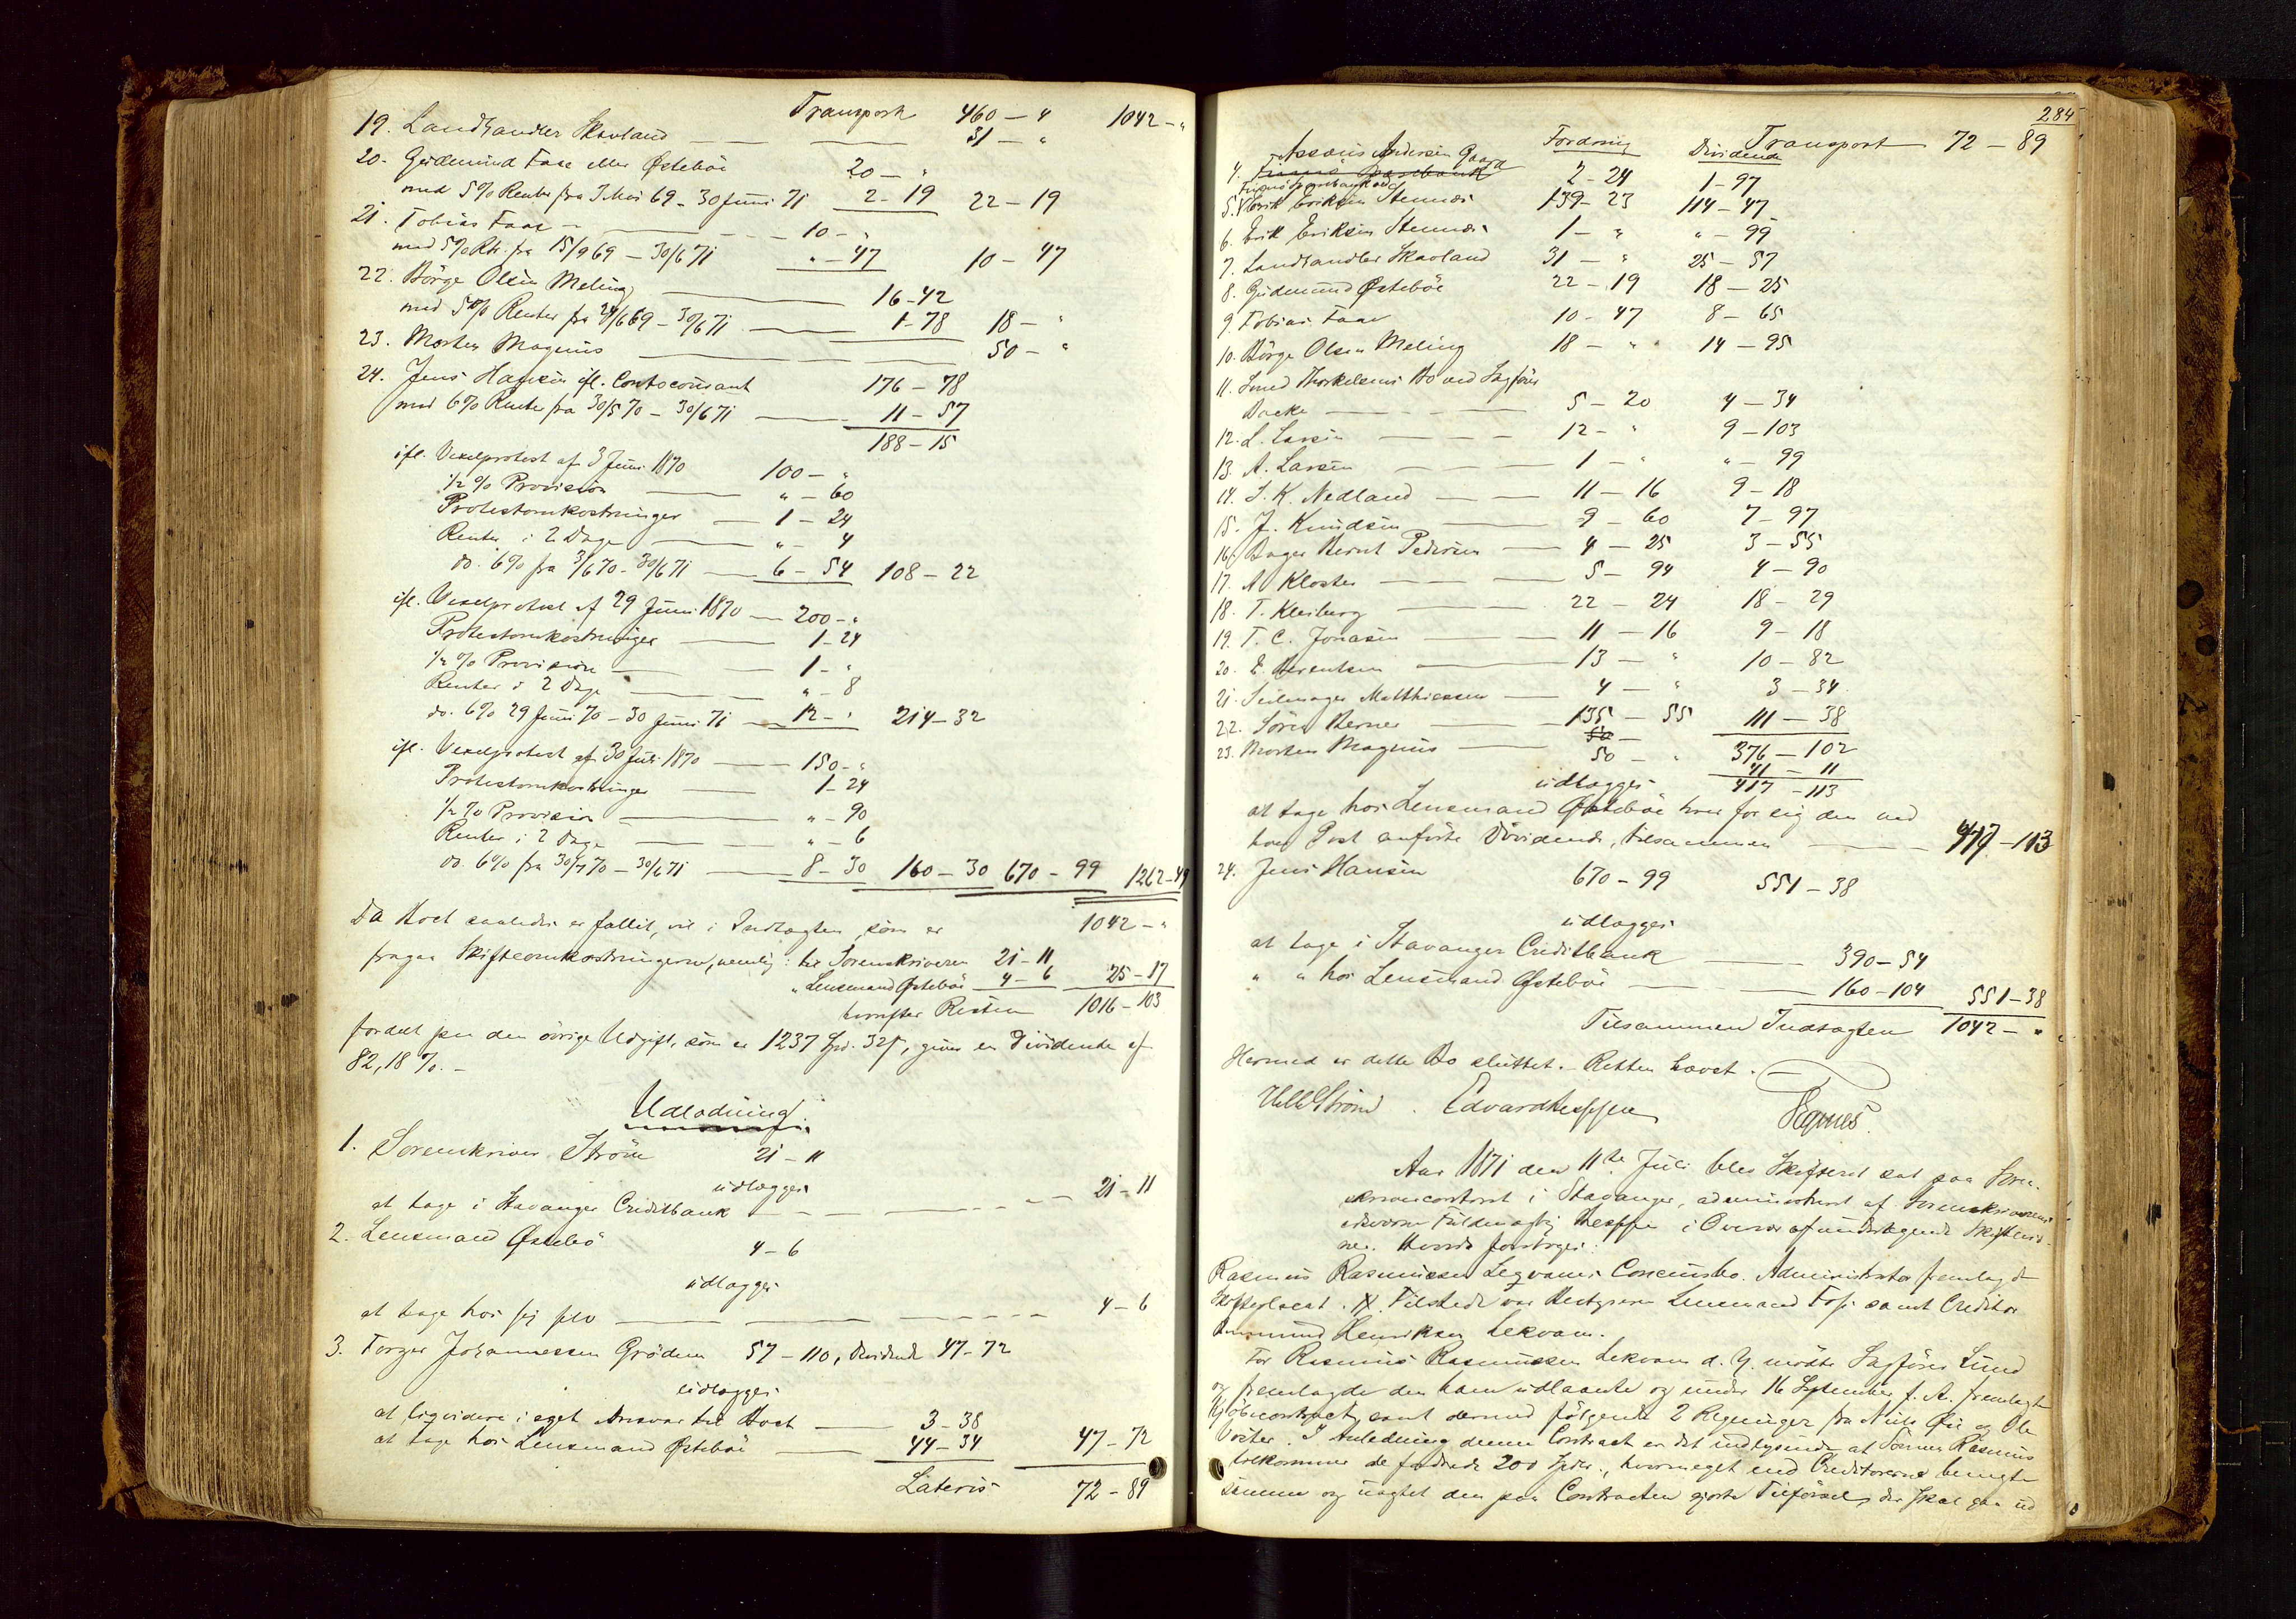 Transport 460 – " 1042 – "
19. Landhandler Skavland — — 31 – "
20. Gudmund Faae eller Østebøe 20 – "
med 5% Renter fra 3 Mai 69 – 30 Juni 71 2 – 19 22 – 19
21. Tobias Faae — — 10 – "
med 5% Rtr. fra 15/9 69 – 30/6 71 " – 47 10 – 47
22. Börge Olsen Meling — 16 – 42
med 5% Renter fra 24/6 69 – 30/6 71 — 1 – 78 18 – "
23. Morten Magnus — 50 – "
24. Jens Hansen ifl. Contocourant 176 – 78
med 6% Renter fra 30/5 70 – 30/6 71 — 11 – 57
188 – 15
ifl. Vexelprotest af 3 Juni 1870 100 – "
1/2 % Provision — " – 60
Protestomkostninger — 1 – 24
Renter i 2 Dage — " – 4
do. 6% fra 3/6 70 – 30/6 71 — 6 – 54 108 – 22
ifl. Vexelprotest af 29 Juni 1870 — 200 – "
Protestomkostninger — 1 – 24
1/2 % Provision — 1 – "
Renter i 2 Dage — " – 8
do. 6% 29 Juni 70 – 30 Juni 71 — 12 – " 214 – 32
ifl. Vexelprotest af 30 Juli 1870 — 150 – "
Protestomkostninger — 1 – 24
1/2 % Provision — " – 90
Renter i 2 Dage — " – 6
do. 6% fra 30/7 70 – 30/6 71 — 8 – 30 160 – 30 670 – 99 1262 – 49
Da Boet saaledes er fallit, vil i Indtægten, som er 1042 – "
fragaa Skifteomkostningerne, nemlig: til Sorenskriveren 21 – 11
" Lensmand Østebøe 4 – 6 25 – 17
hvorefter Resten 1016 – 103
fordelt paa den övrige Udgift, som er 1237 Spd. 32 ß, giver en Dividende af
82,18 %. –
Udlodning.
1. Sorenskriver Ström 21 – 11
udlægges
at tage i Stavanger Creditbank — — 21 – 11
2. Lensmand Østebö 4 – 6
udlægges
at tage hos sig selv — — 4 – 6
3. Torger Johannessen Gröden 57 – 110, Dividende 47 – 72
udlægges
at liqvidere i eget Ansvar til Boet — 3 – 38
at tage hos Lensmand Østebøe — 44 – 34 47 – 72
Lateris 72 – 89
284
Fordring Dividende Transport 72 – 89
4. Assaris Andersen Gaard 2 – 24 1 – 97
5. Erik Eriksen Stennæs 139 – 23 114 – 47
6. Erik Eriksen Stennæs 1 – " " – 99
7. Landhandler Skavland 31 – " 25 – 57
8. Gudmund Østebøe 22 – 19 18 – 25
9. Tobias Faae 10 – 47 8 – 65
10. Börge Olsen Meling 18 – " 14 – 95
11. Smed Thorkelsens Bo ved Sagförer
Bache — — 5 – 20 4 – 34
12. L. Larsen — — 12 – " 9 – 103
13. A. Larsen — — 1 – " " – 99
14. S. K. Nedland — — 11 – 16 9 – 18
15. J. Knudsen — 9 – 60 7 – 97
16. Bager Bernt Pedersen — 4 – 25 3 – 55
17. A Kloster — — 5 – 94 4 – 90
18. T. Kleiberg — — 22 – 24 18 – 29
19. T. C. Jonasen — — 11 – 16 9 – 18
20. E. Berentsen — 13 – " 10 – 82
21. Seilmager Matthiessen — 4 – " 3 – 34
22. Sören Berner — 135 – 55 111 – 38
23. Morten Magnus — 50 – " 376 – 102
41 – 11
udlægges 417 – 113
at tage hos Lensmand Østebøe hver for sig den ved
hver Post anförte Dividende, tilsammen — 417 – 113
24. Jens Hansen 670 – 99 551 – 38
udlægges
at tage i Stavanger Creditbank — 390 – 54
" " hos Lensmand Østebøe — 160 – 104 551 – 38
Tilsammen Indtægten 1042 – "
Hermed er dette Bo sluttet. – Retten hævet.
Ström. Edvard
Aar 1871 den 11te Juli blev Skifteret sat paa Soren-
skrivercontoret i Stavanger, administreret af Sorenskriverens
edsvorne Fuldmægtig i Overvær af undertegnede Skiftevid-
ner. Hvorda foretoges:
Rasmus Rasmussen Legvams Concursbo. Administrator fremlagde
Skifteplacat. Tilstede var Bestyreren Lensmand samt Creditor
Henriksen Lekvam.
For Rasmus Rasmussen Lekvam d. Y. mödte Sagförer Lund
og fremlagde den ham udlaante og under 16 September f. A. fremlagte
Kjöbecontract, samt dermed fölgende 2 Regninger fra Nils og Ole
I Anledning denne Contract er det indlysende at Sönnen Rasmus
tilkommer de fordrede 200 Spdr., hvormeget end Creditorerne benegte
samme og uagtet den paa Contracten gjorte Tilförsel, der skal gaa ud